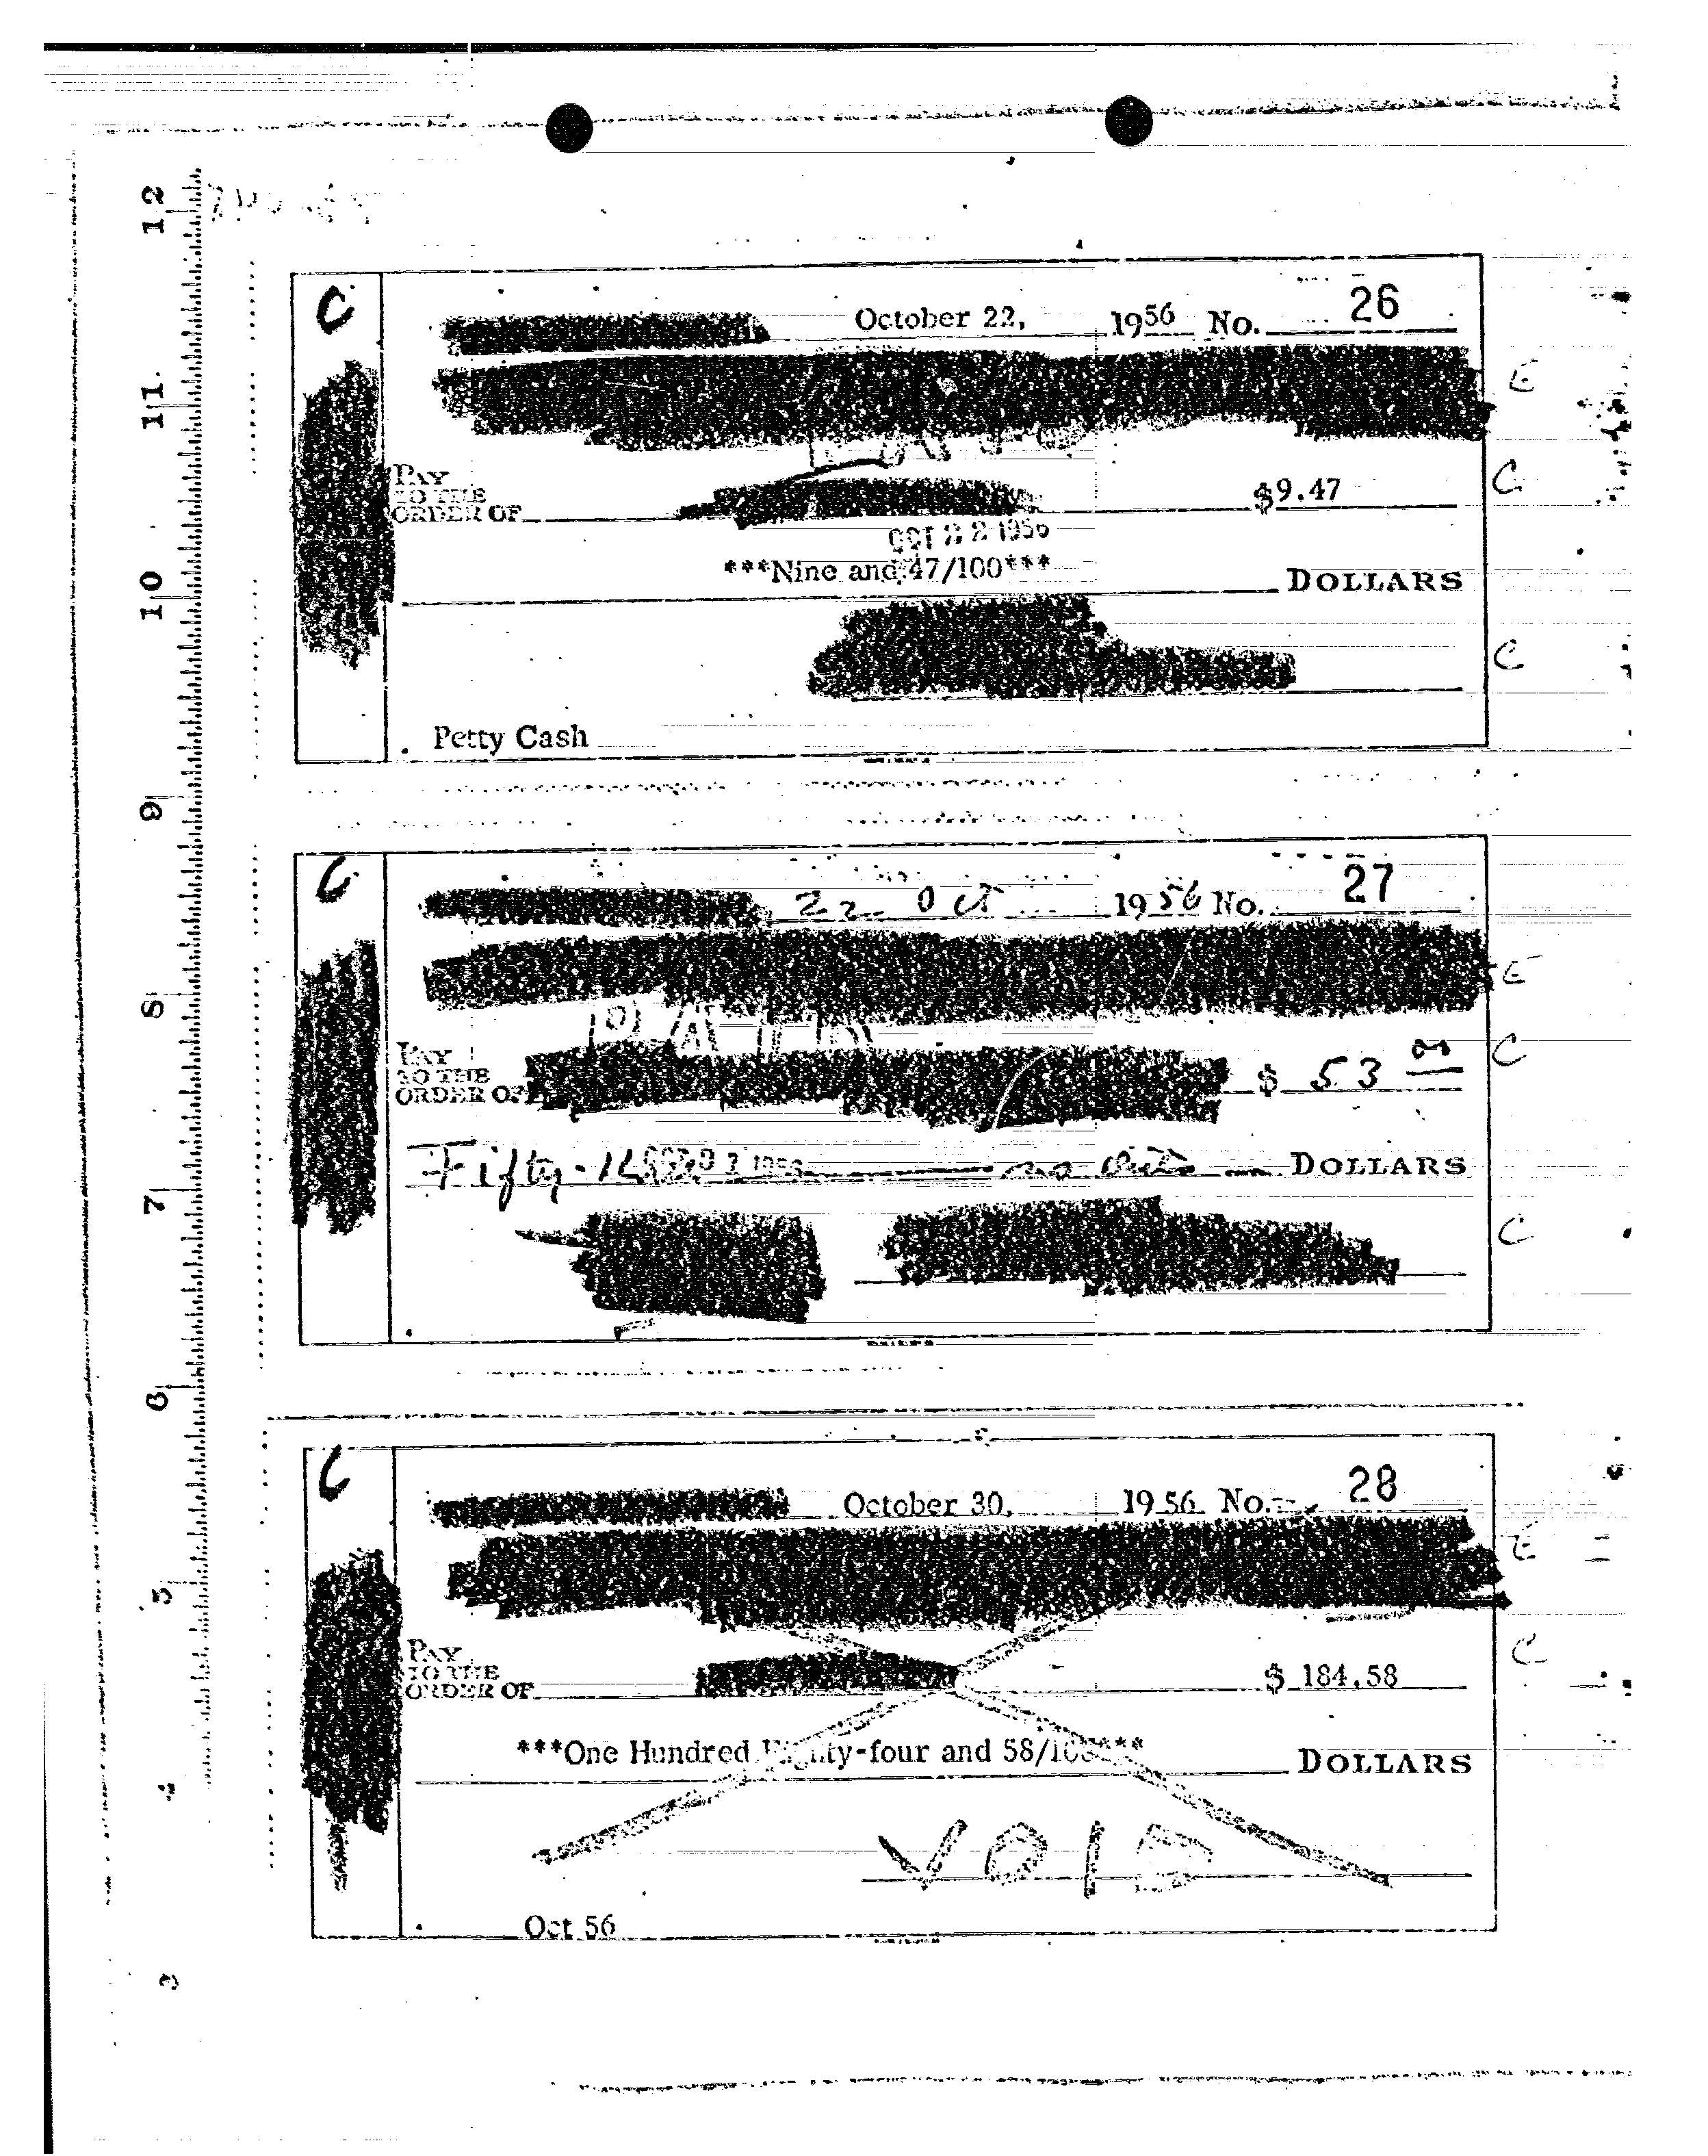 12
11
10
9
8
7
6
5
4
3
C
October 22, 1956 No. 26
E
PAY
TO THE
ORDER OF $9.47
C
OCT 22 1956
***Nine and 47/100*** DOLLARS
C
Petty Cash
C
22 Oct 1956 No. 27
E
PAID
PAY
TO THE
ORDER OF $ 53 00
C
Fifty- no cts DOLLARS
C
C
October 30, 1956 No. 28
E
PAY
TO THE
ORDER OF $ 184.58
C
***One Hundred Eighty-four and 58/100*** DOLLARS
VOID
Oct 56